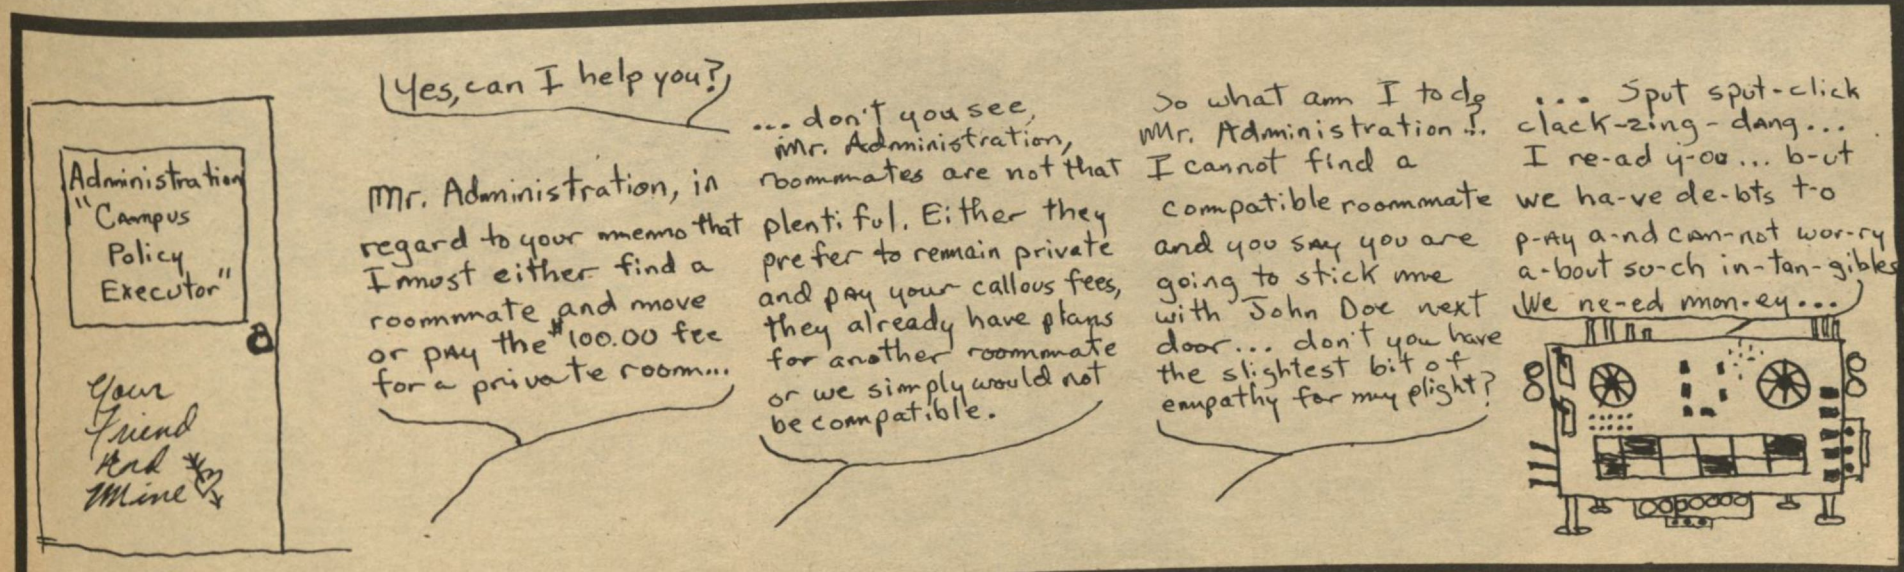 Administration
"Campus
Policy
Executor"
Your
Friend
And
Mine
Yes, can I help you?
Mr. Administration, in
regard to your memo that
I must either find a
roommate and move
or pay the $100.00 fee
for a private room...
... don't you see,
Mr. Administration,
roommates are not that
plentiful. Either they
prefer to remain private
and pay your callous fees,
they already have plans
for another roommate
or we simply would not
be compatible.
So what am I to do
Mr. Administration?..
I cannot find a
compatible roommate
and you say you are
going to stick me
with John Doe next
door... don't you have
the slightest bit of
empathy for my plight?
... Sput sput-click
clack-zing-dang...
I re-ad y-ou... b-ut
we ha-ve de-bts t-o
p-ay a-nd can-not wor-ry
a-bout su-ch in-tan-gibles
We ne-ed mon-ey...